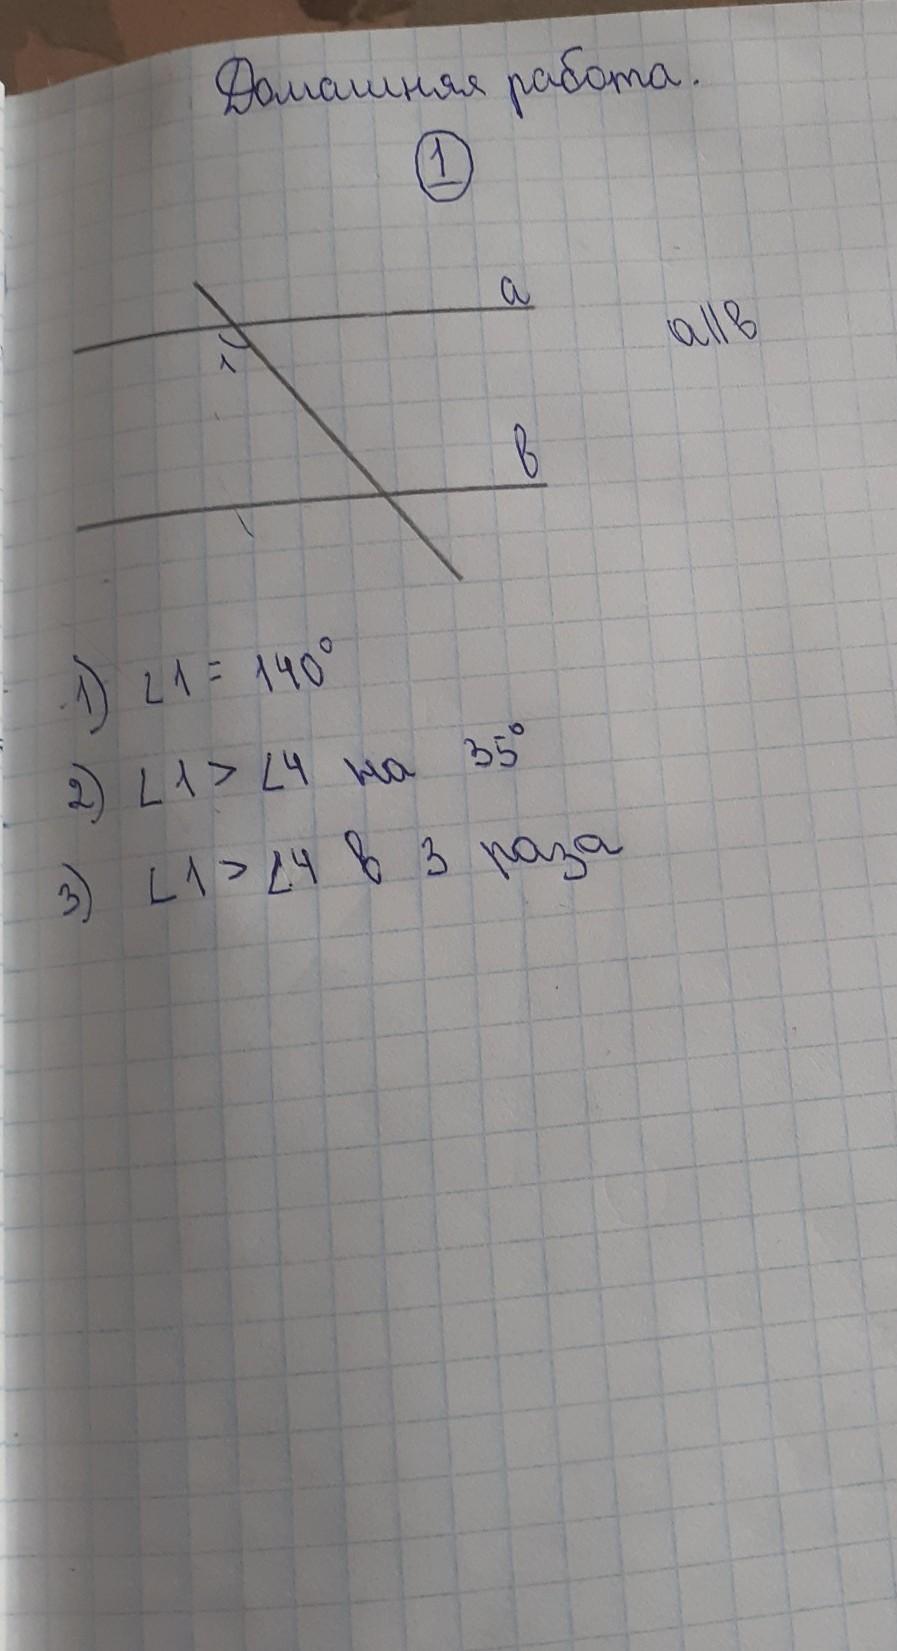 Домашняя работа.
1
a
a||в
1
в
1) ∠1 = 140°
2) ∠1 > ∠4 на 35°
3) ∠1 > ∠4 в 3 раза